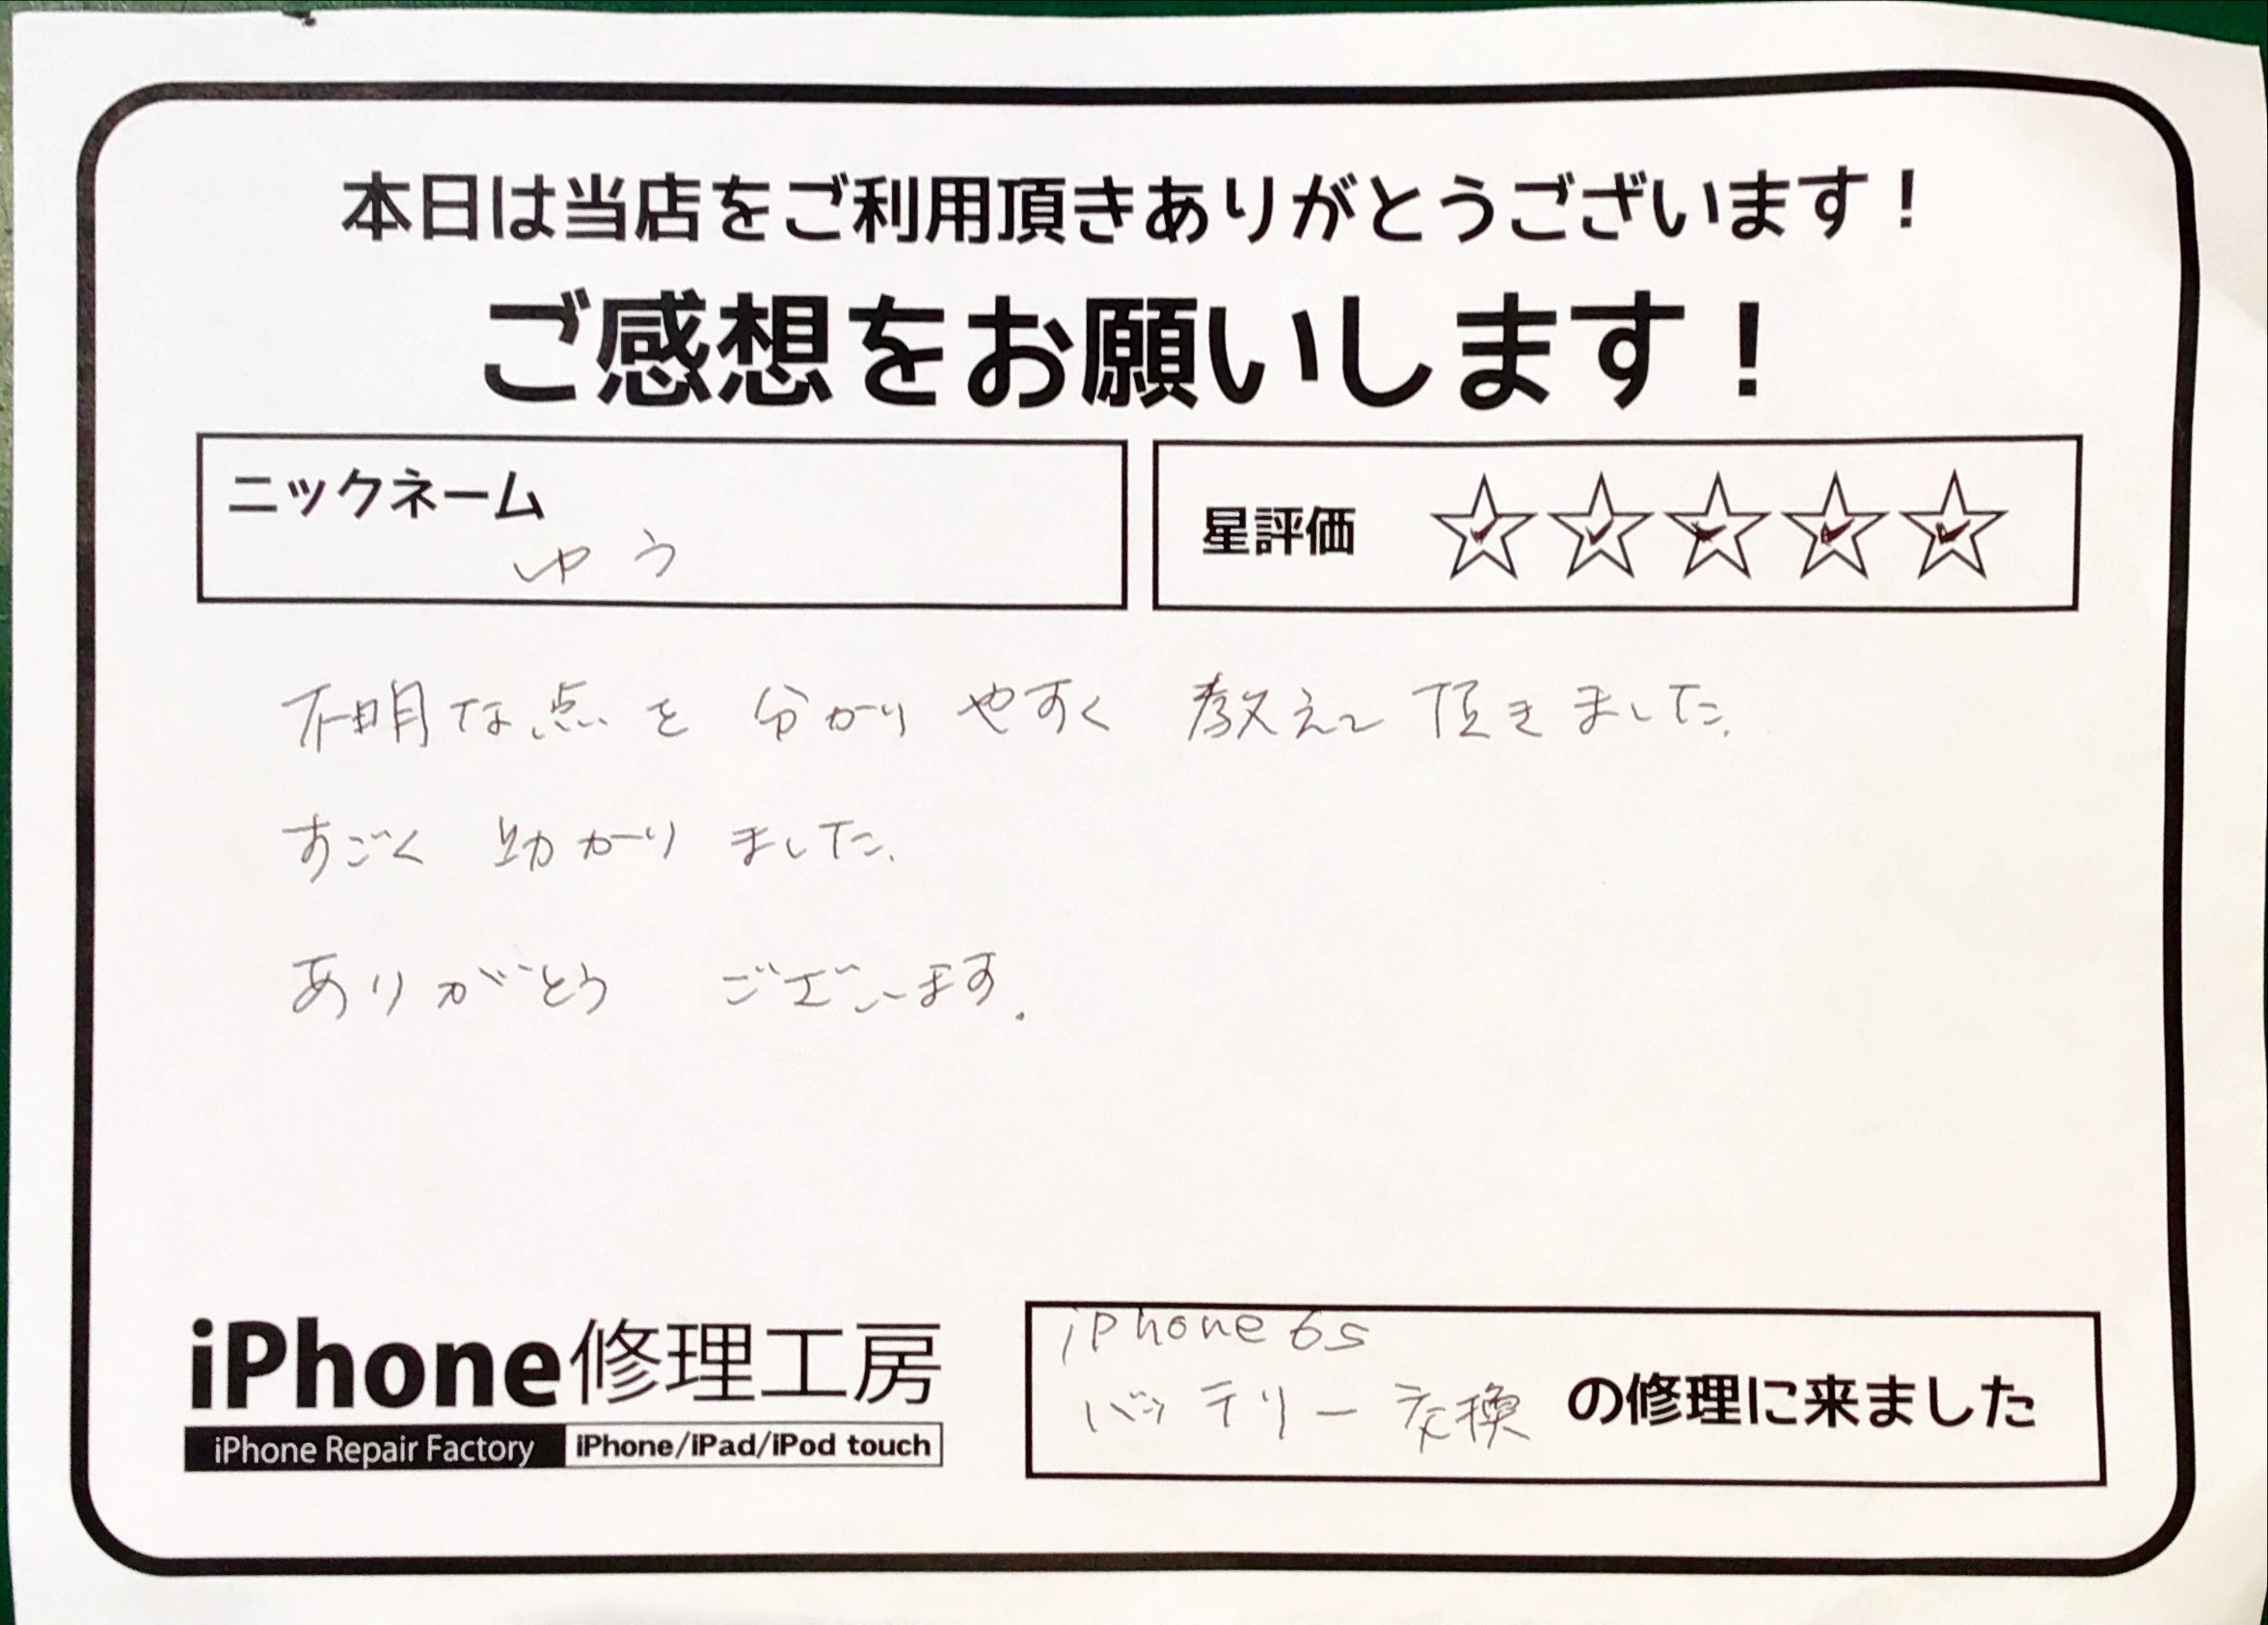 本日は当店をご利用頂きありがとうございます！
ご感想をお願いします！
ニックネーム
ゆう
星評価 ☆☆☆☆☆
不明な点を分かりやすく教えて頂きました。
すごく助かりました。
ありがとうございます。
iPhone修理工房
iPhone Repair Factory iPhone/iPad/iPod touch
iPhone 6s
バッテリー交換 の修理に来ました